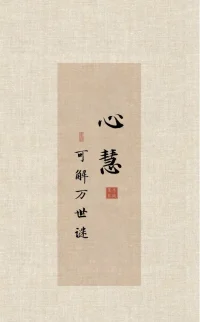 心慧
可解万世谜